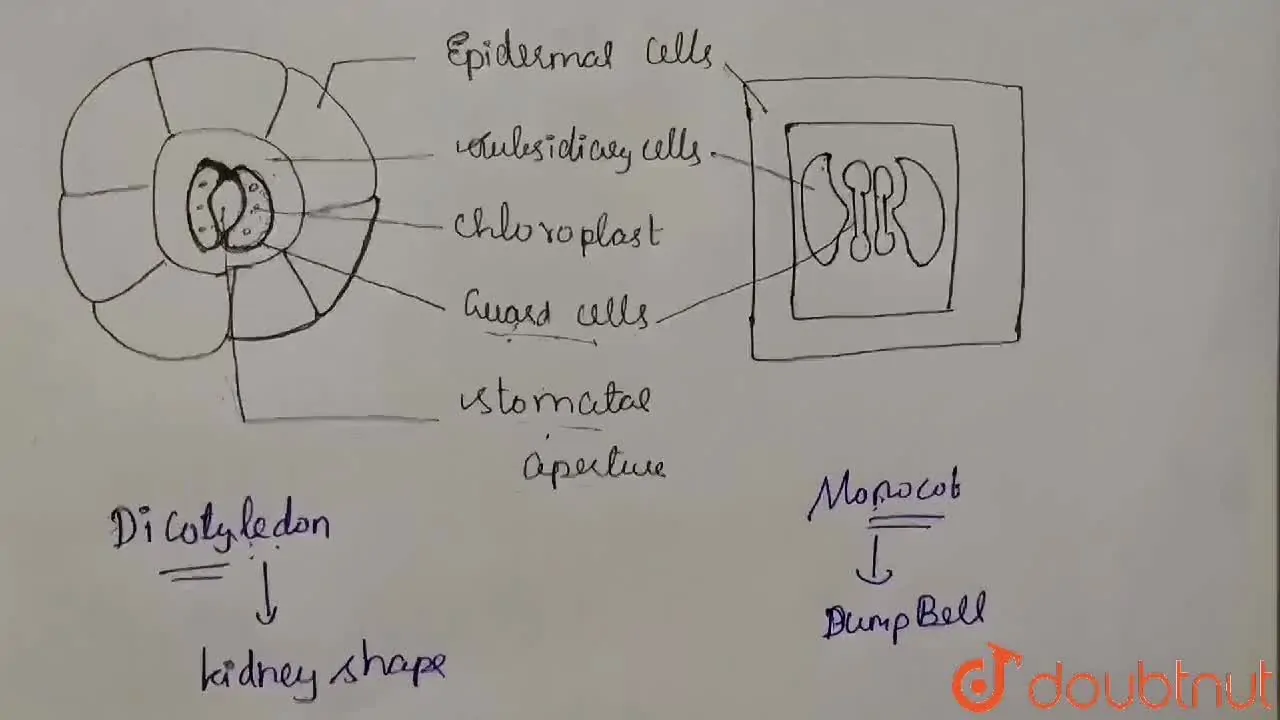 Epidermal cells
subsidiary cells
chloroplast
Guard cells
stomatal
aperture
Dicotyledon
Monocot
kidney shape
DumpBell
doubtnut